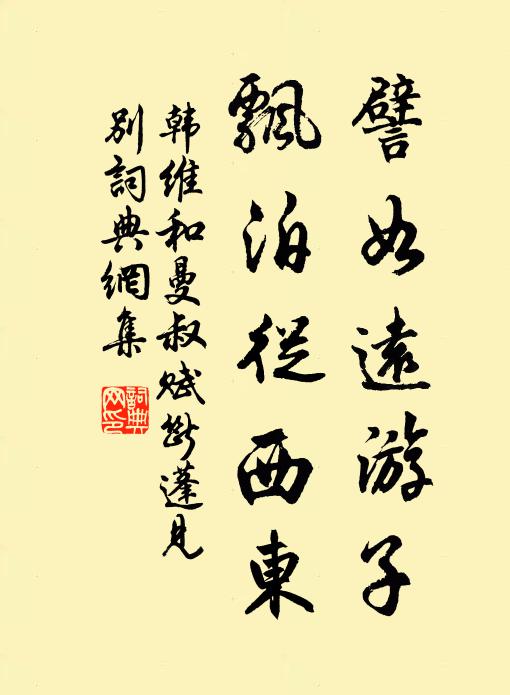 譬如遠游子
飄泊從西東
韩维和曼叔赋断蓬见
别詞典網集
詞典
网印